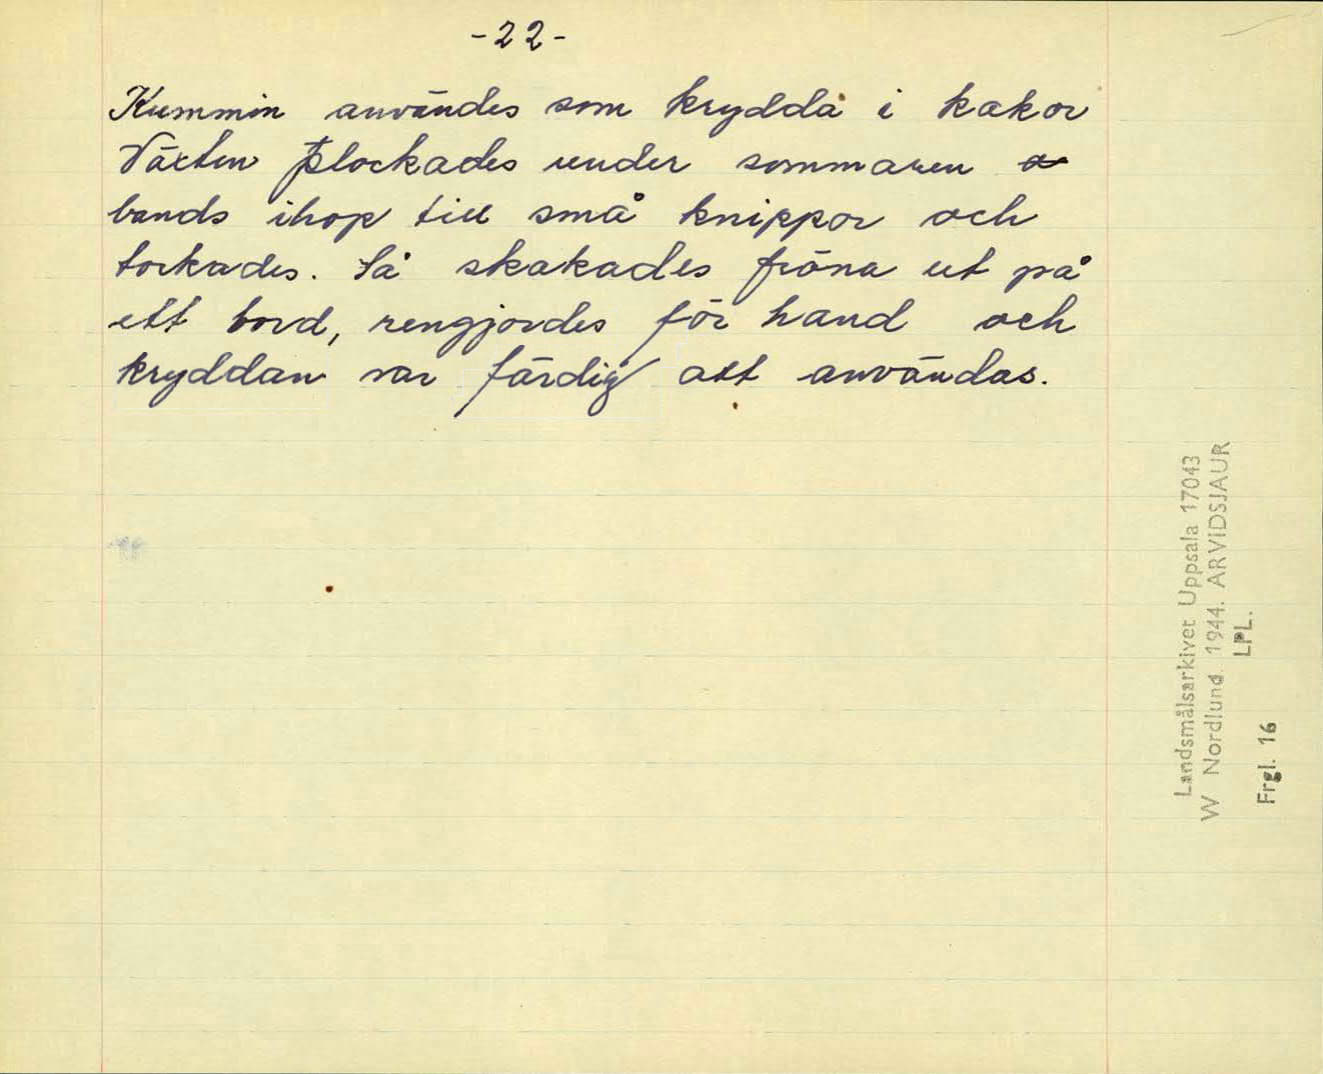 -22-
Kummin användes som krydda i kakor
Växten plockades under sommaren
bands ihop till små knippor och
torkades. Så skakades fröna ut på
ett bord, rengjordes för hand och
kryddan var färdig att användas.
Landsmålsarkivet Uppsala 17043
W Nordlund. 1944. ARVIDSJAUR
LPL.
Frgl. 16